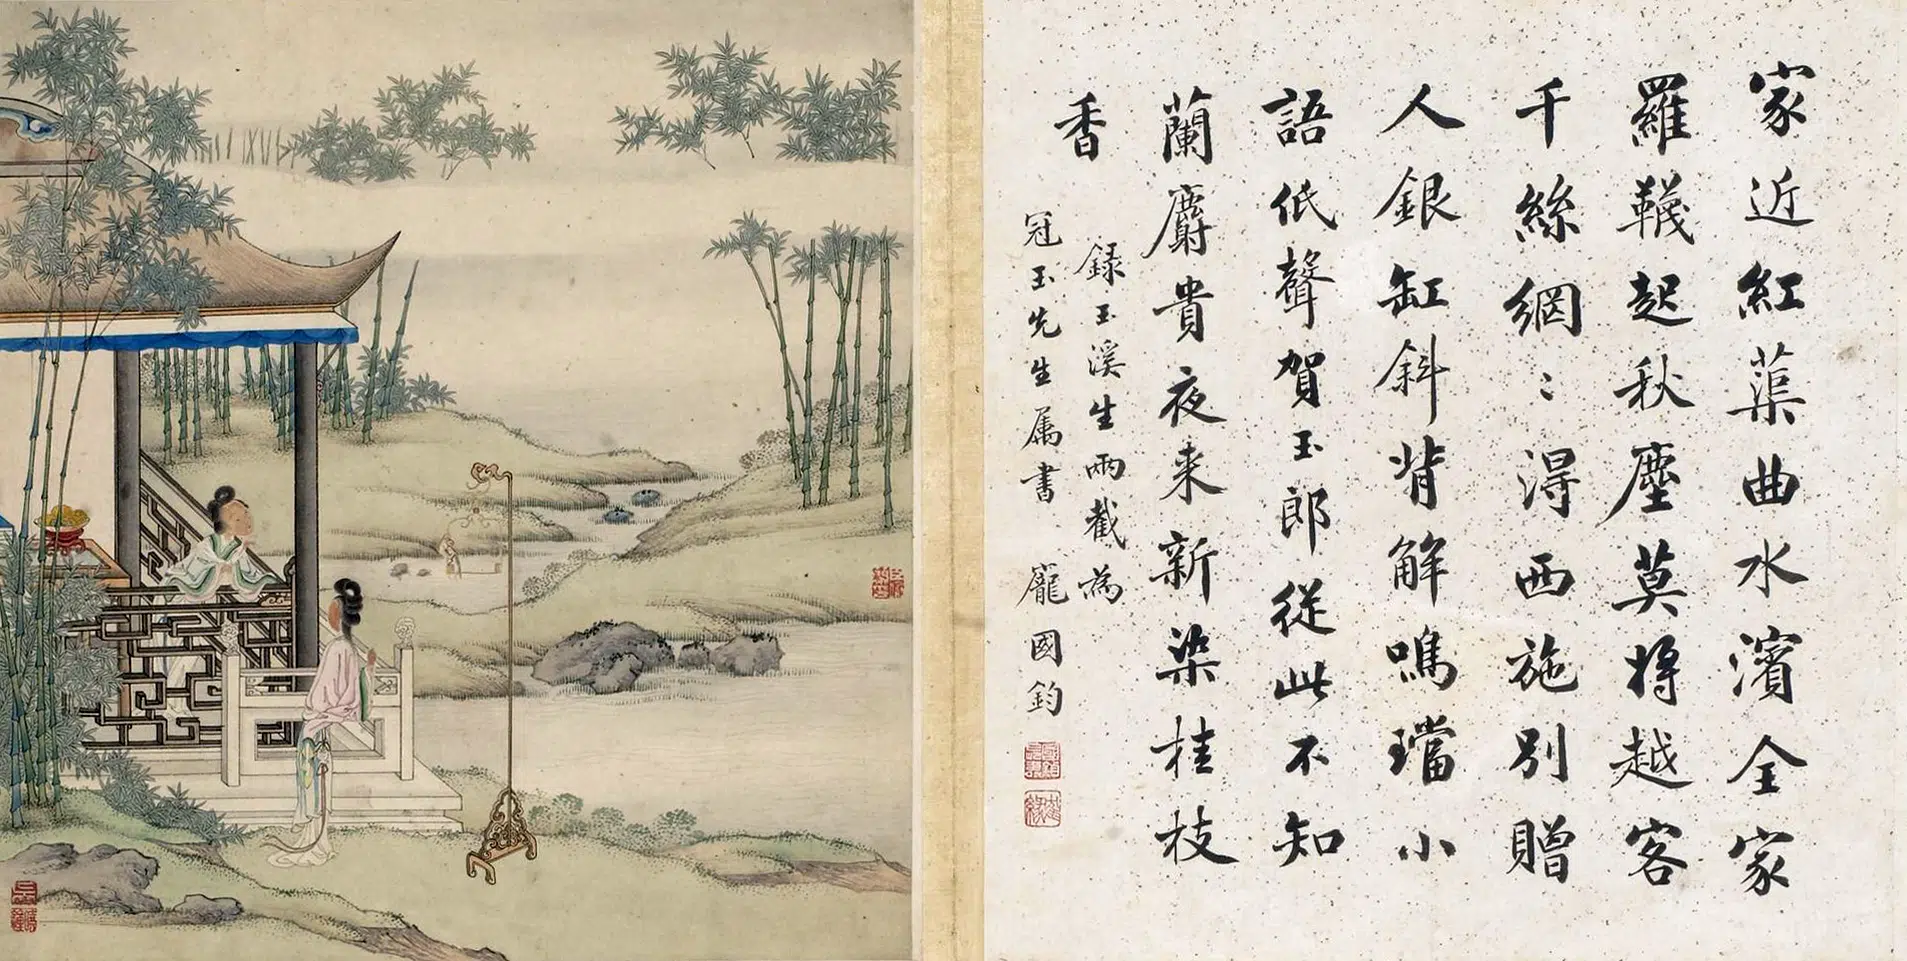 家近紅蕖曲水濱全家
羅韈起秋塵莫將越客
千絲網〻得西施別贈
人銀缸斜背解鳴璫小
語低聲賀玉郎從此不知
蘭麝貴夜来新染桂枝
香
録玉溪生兩截為
冠玉先生属書 龐國鈞